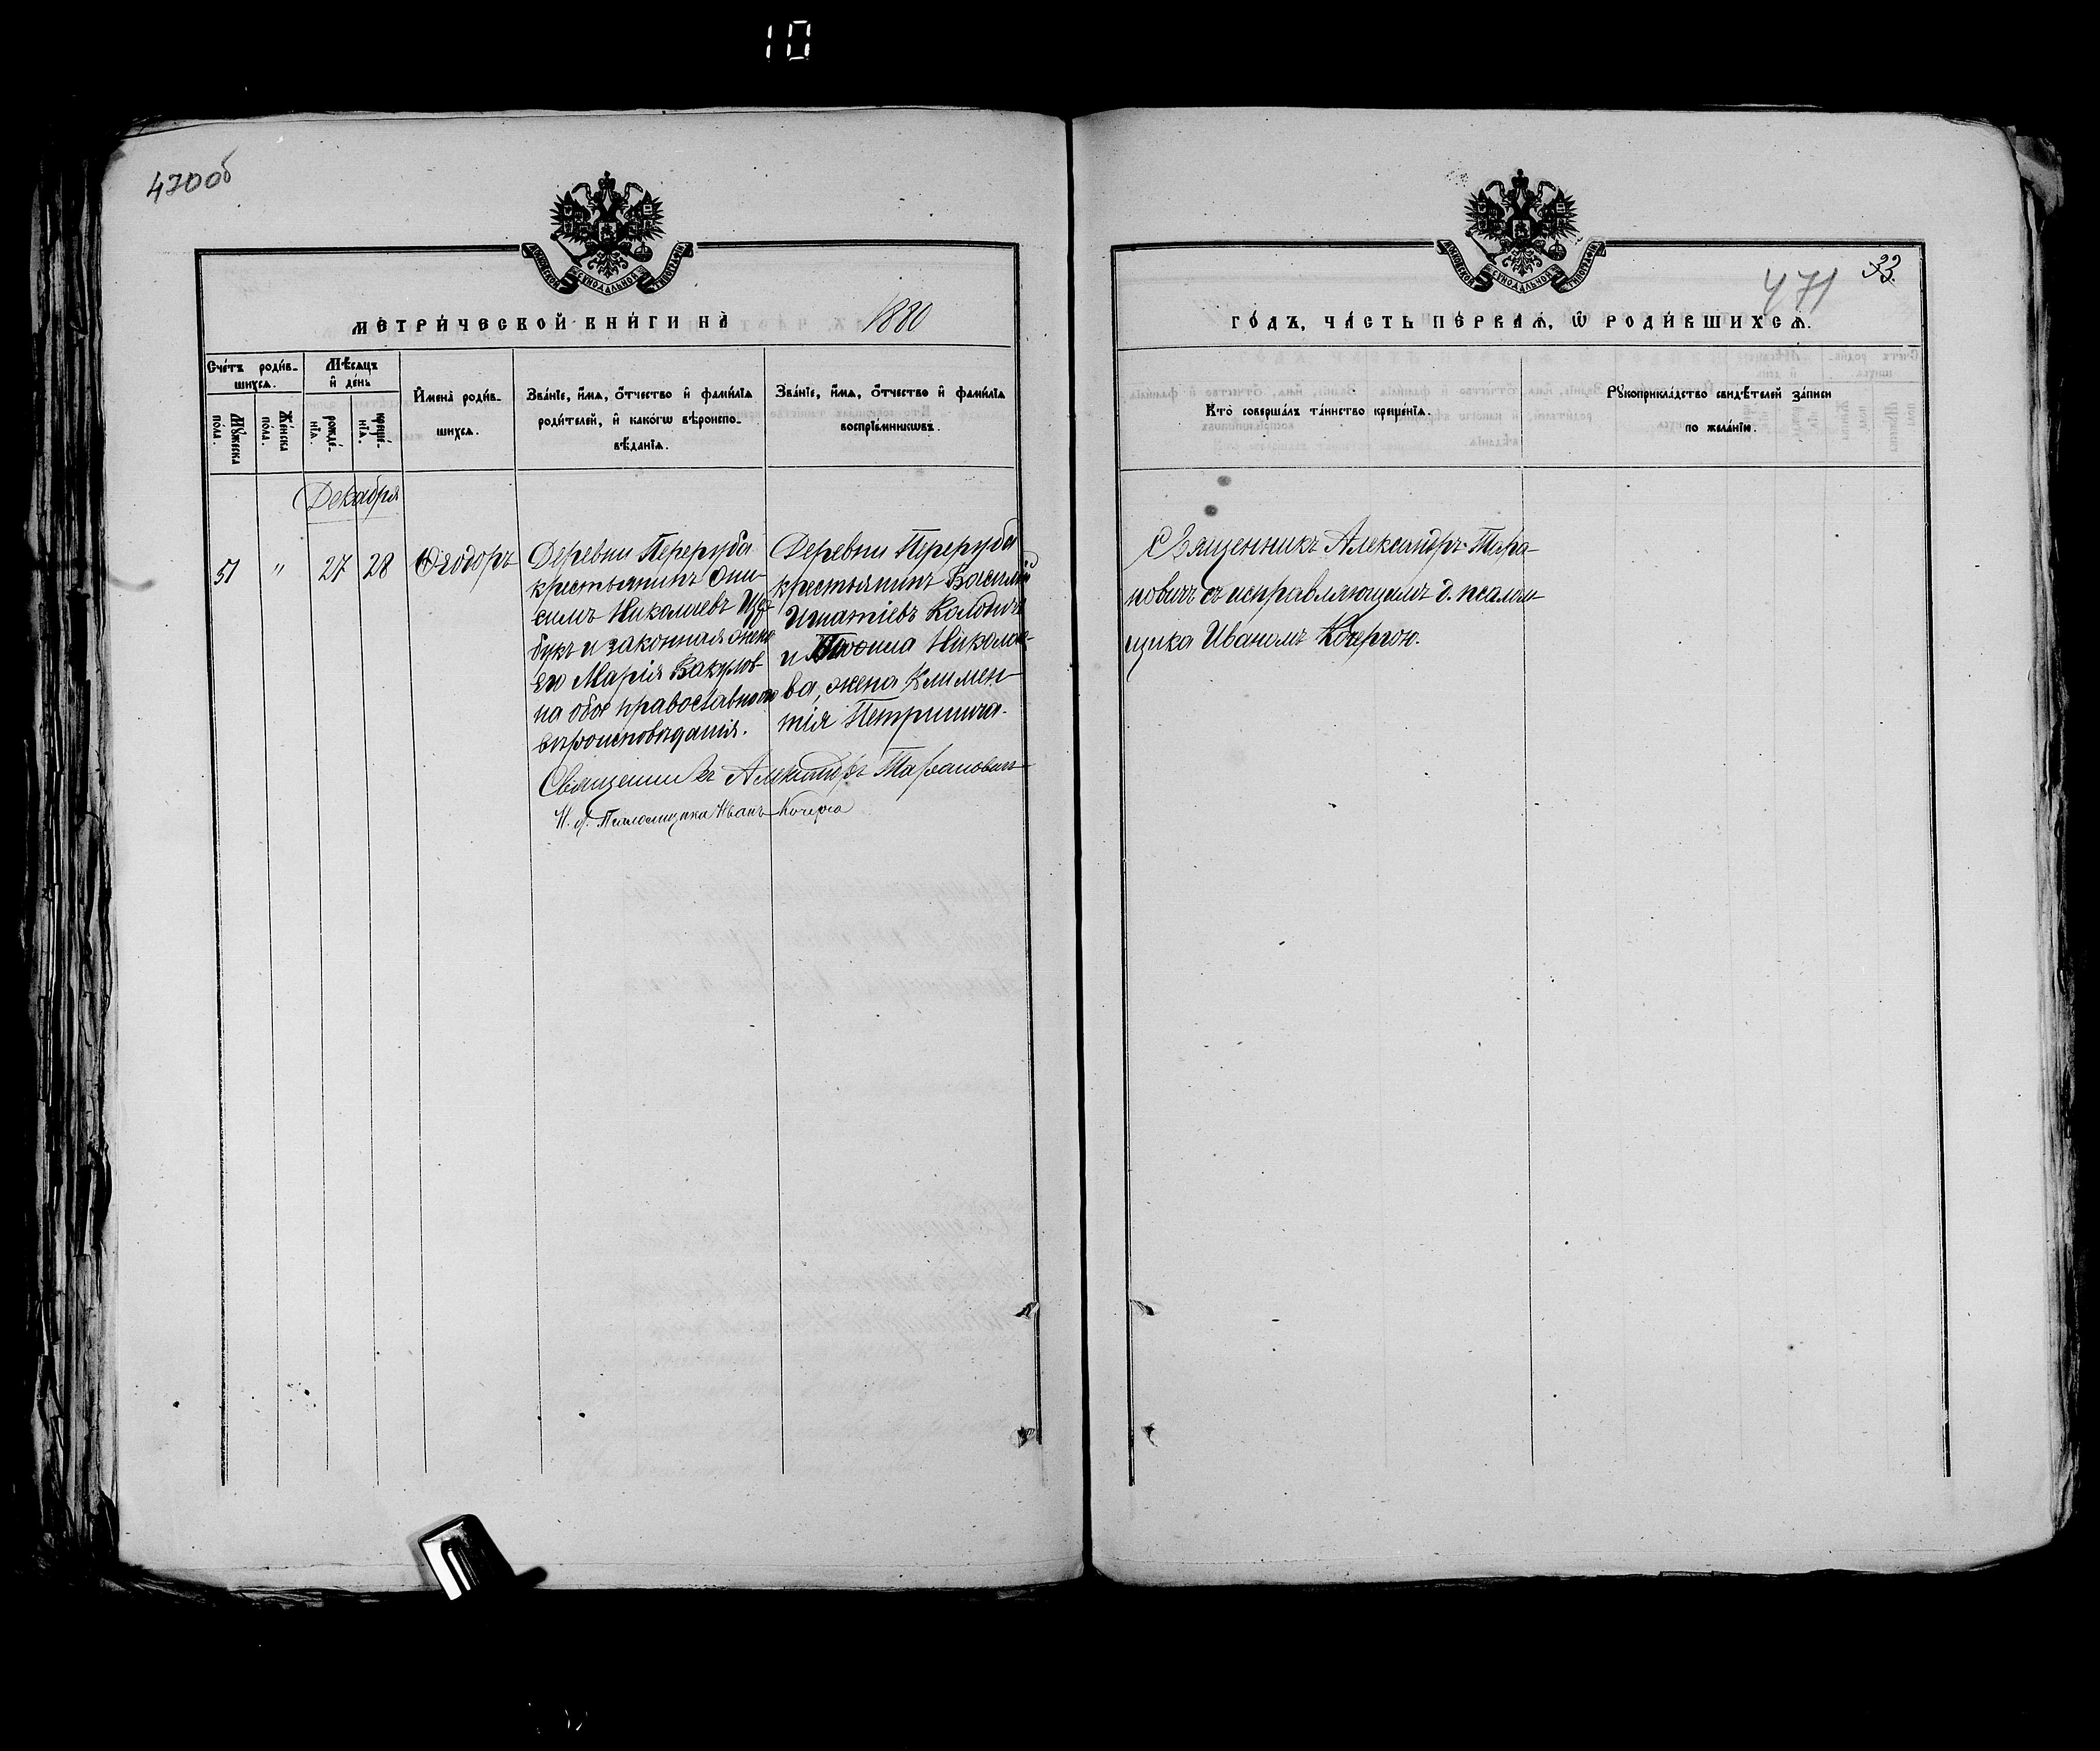 10
470об
МОСКОВСКОЙ СУНОДАЛЬНОЙ ТИПОГРАФІИ
МЕТРИ́ЧЕСКОЙ КНИ́ГИ НА̀ 1880
Сче́тъ роди́в-
шихсѧ.
Мѣ́сѧцъ
и҆ де́нь
Мꙋ́жеска
по́ла.
Же́нска
по́ла.
рожде́-
нїѧ.
креще́-
нїѧ.
И҆мена̀ роди́в-
шихсѧ.
Зва́нїе, и҆́мѧ, ѻ҆́тчество и҆ фами́лїѧ
роди́телей, и҆ како́гѡ вѣроиспо-
вѣ́данїѧ.
Зва́нїе, и҆́мѧ, ѻ҆́тчество и҆ фами́лїѧ
воспрїе́мникѡвъ.
Декабря
51 " 27 28 Ѳеодоръ
Деревни Переруба
крестьянинъ Они-
симъ Николаевъ
и законная жена
его Марія Вакулов-
на обое православнаго
вѣроисповѣданія.
Деревни Переруба
крестьянинъ Василій
Игнатіевъ
и Николае-
ва, жена Климен-
тія
Священникъ Александръ Таранович
И. д. Псаломщика Иванъ Кочерга
МОСКОВСКОЙ СУНОДАЛЬНОЙ ТИПОГРАФІИ
471 33.
ГО́ДЪ, ЧА́СТЬ ПЕ́РВАѦ, Ѡ҆ РОДИ́ВШИХСѦ.
Кто̀ соверша́лъ та́инство креще́нїѧ.
Рꙋкоприкла́дство свидѣ́телей за́писи
по жела́нїю.
Священникъ Александръ Тара-
новичъ съ исправляющимъ д. псалом-
щика Иваномъ Кочергою.